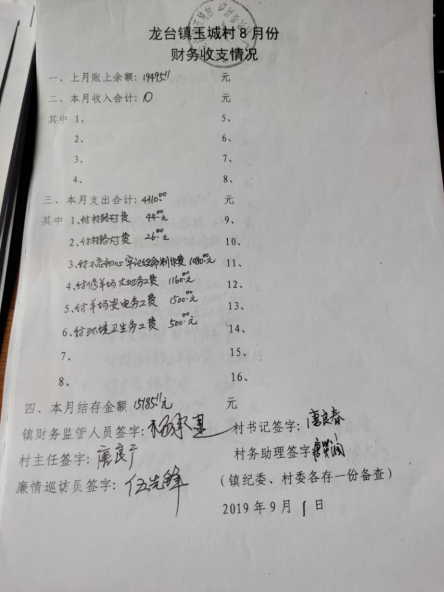 龙台镇玉城村8月份
财务收支情况
一、上月账上余额：19495.11 元
二、本月收入合计：0 元
其中 1、 5、
2、 6、
3、 7、
4、 8、
三、本月支出合计：4310.00 元
其中 1、付村路灯费 44.00元 9、
2、付村路灯费 26.00元 10、
3、付不忘初心牢记使命制作费 1080.00元 11、
4、付修羊场火地务工费 1160.00元 12、
5、付羊场变电务工费 1500.00元 13、
6、付环境卫生务工费 500.00元 14、
7、 15、
8、 16、
四、本月结存金额 15185.11元 元
镇财务监管人员签字： 村书记签字：唐良春
村主任签字：唐良广 村务助理签字
廉情巡访员签字：伍先锋 （镇纪委、村委各存一份备查）
2019年9月1日